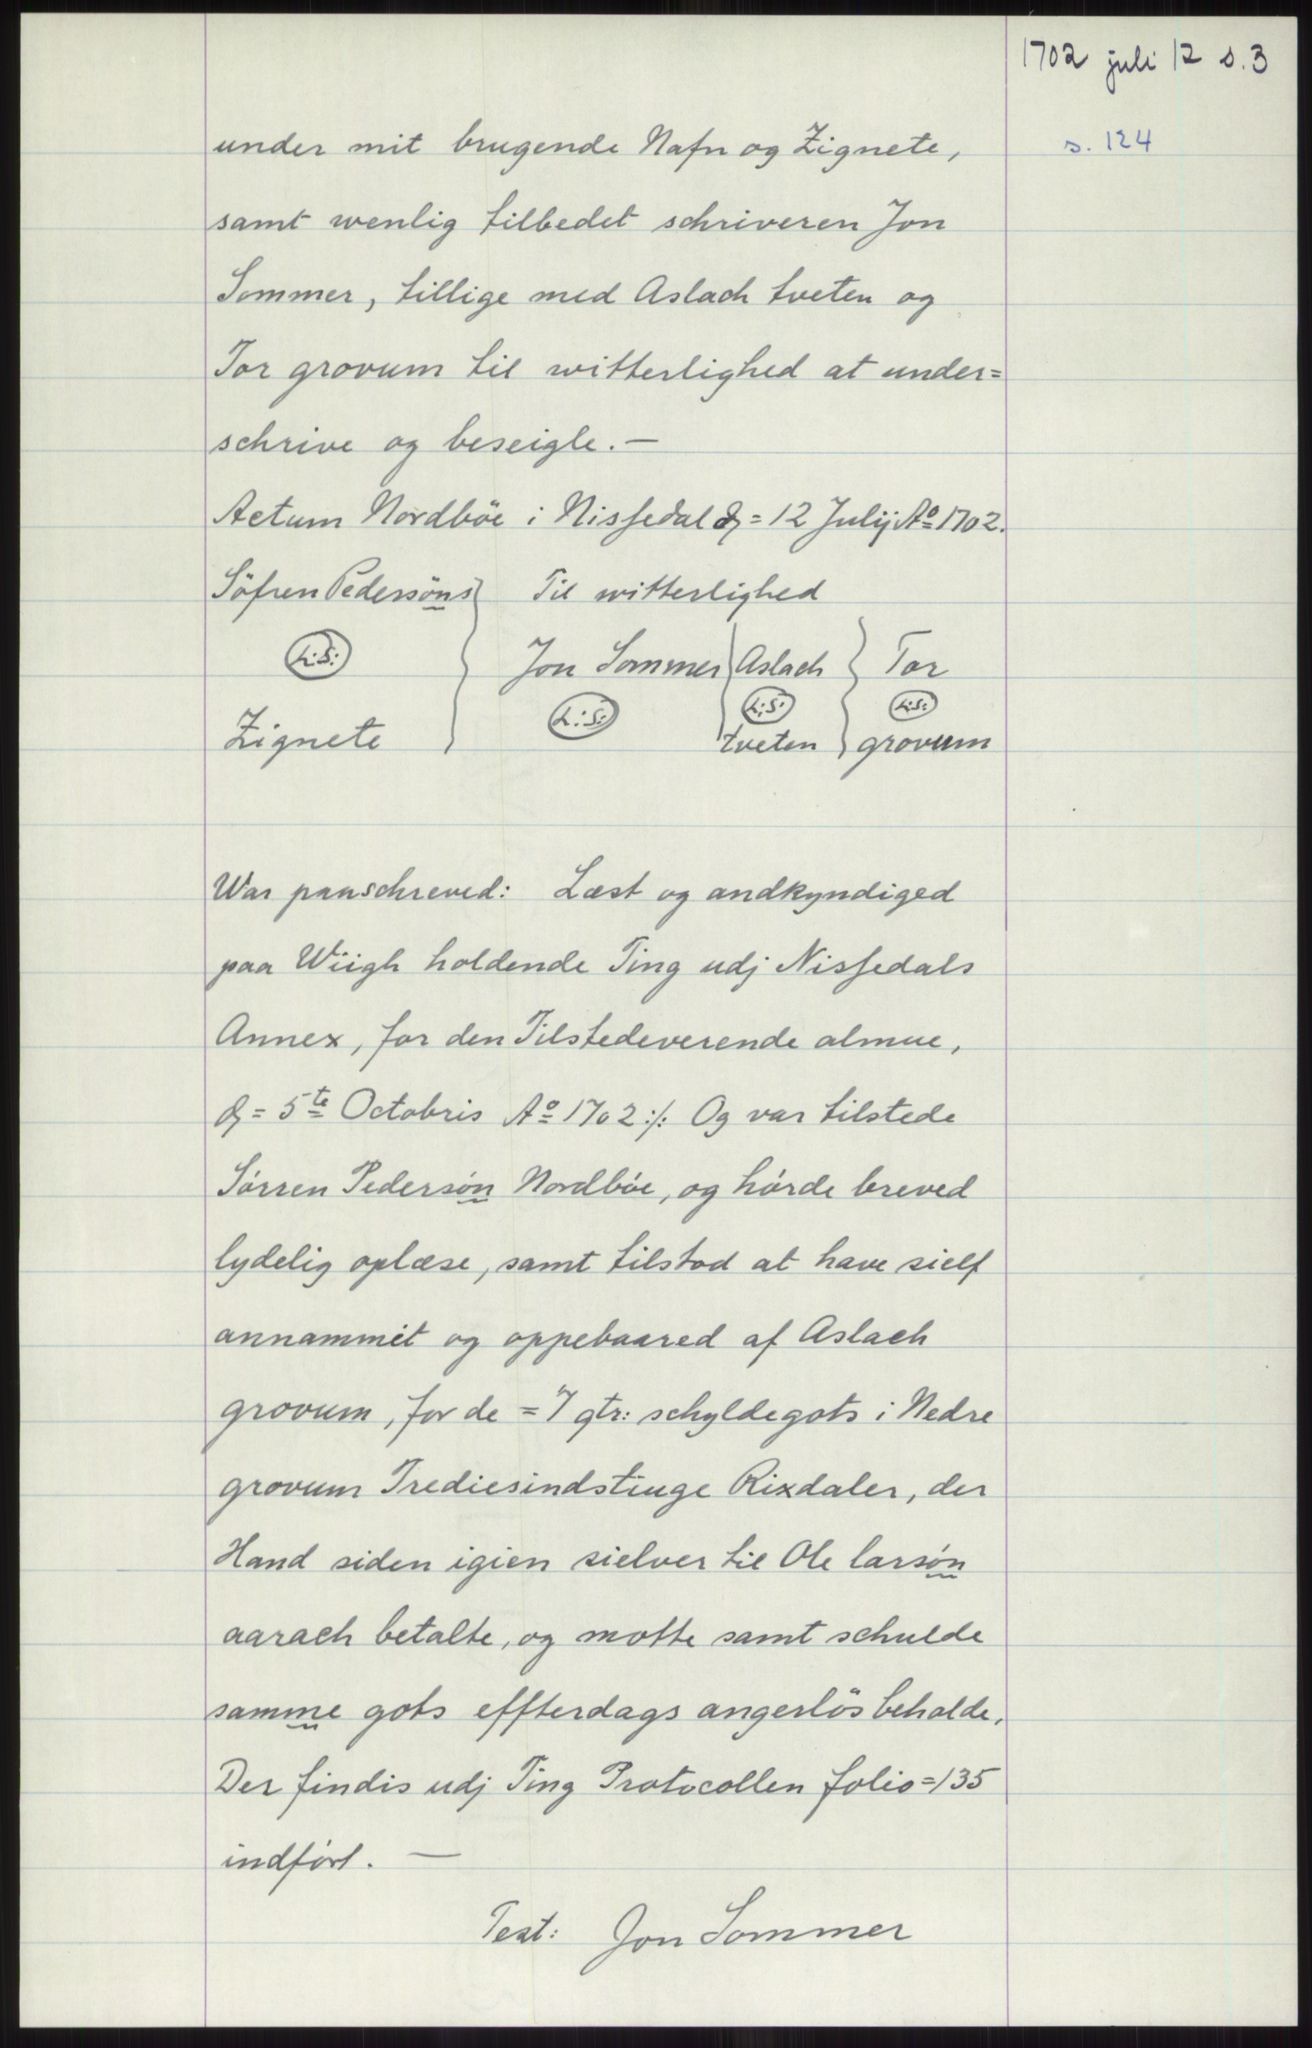 1702 juli 12 s. 3
s. 124
under mit brugende Nafn og Zignete,
samt wenlig tilbedet schriveren Jon
Sommer, tillige med Aslach tveten og
Tor grovum til witterlighed at under=
schrive og beseigle. —
Actum Nordböe i Nissedal d = 12 Julij Aº 1702.
Söfren Pedersöns Til witterlighed
L:S: Jon Sommer Aslach Tor
L:S: L:S: L:S:
Zignete tveten grovum
War paaschreved: Læst og andkyndiged
paa Wiigh holdende Ting udj Nissedals
Annex, for den Tilstedeverende almue,
d = 5te Octobris Aº 1702 :/: Og var tilstede
Sórren Pedersón Nordbóe, og hórde breved
lydelig oplæse, samt tilstod at have sielf
annammet og oppebaared af Aslach
grovum, for de = 7 gtr: schyldegots i Nedre
grovum Trediesindstiuge Rixdaler, der
Hand siden igien sielver til Ole larsón
aarach betalte, og motte samt schulde
samme gots effterdags angerlös beholde,
Der findis udj Ting Protocollen folio = 135
indfórt. —
Test: Jon Sommer